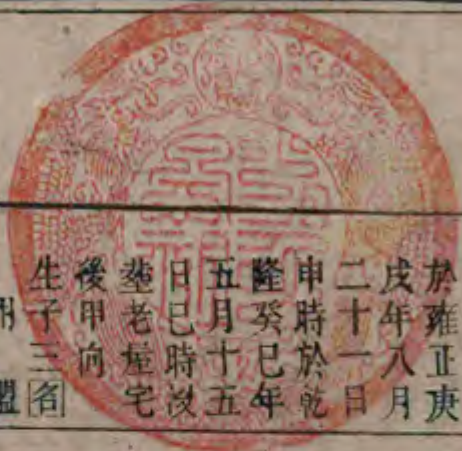 於雍正庚
戌年八月
二十一日
申時於乾
隆癸巳年
五月十五
日巳時沒
塟老屋宅
後甲向
生子三名